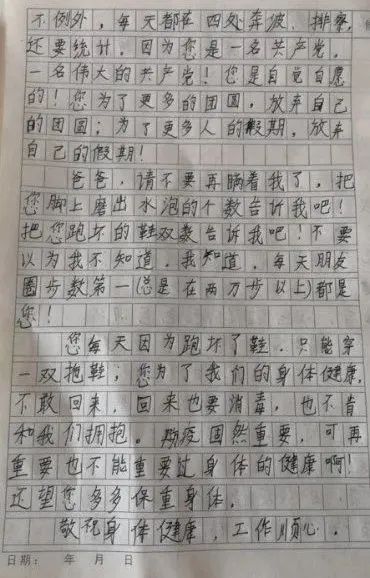 不例外，每天都在四处奔波、排察，
还要统计。因为您是一名共产党。
一名伟大的共产党！您是自觉自愿
的！您为了更多的团圆，放弃自己
的团圆；为了更多人的假期，放弃
自己的假期！
爸爸，请不要再瞒着我了，把
您脚上磨出水泡的个数告诉我吧！
把您跑坏的鞋双数告诉我吧！不要
以为我不知道，我知道，每天朋友
圈步数第一（总是在两万步以上）都是
您！！
您每天因为跑坏了鞋，只能穿
一双抱鞋；您为了我们的身体健康，
不敢回来，回来也要消毒，也不肯
和我们拥抱。防疫固然重要，可再
重要也不能重要过身体的健康啊！
还望您多多保重身体。
敬祝身体健康，工作顺心。
日期： 年 月 日